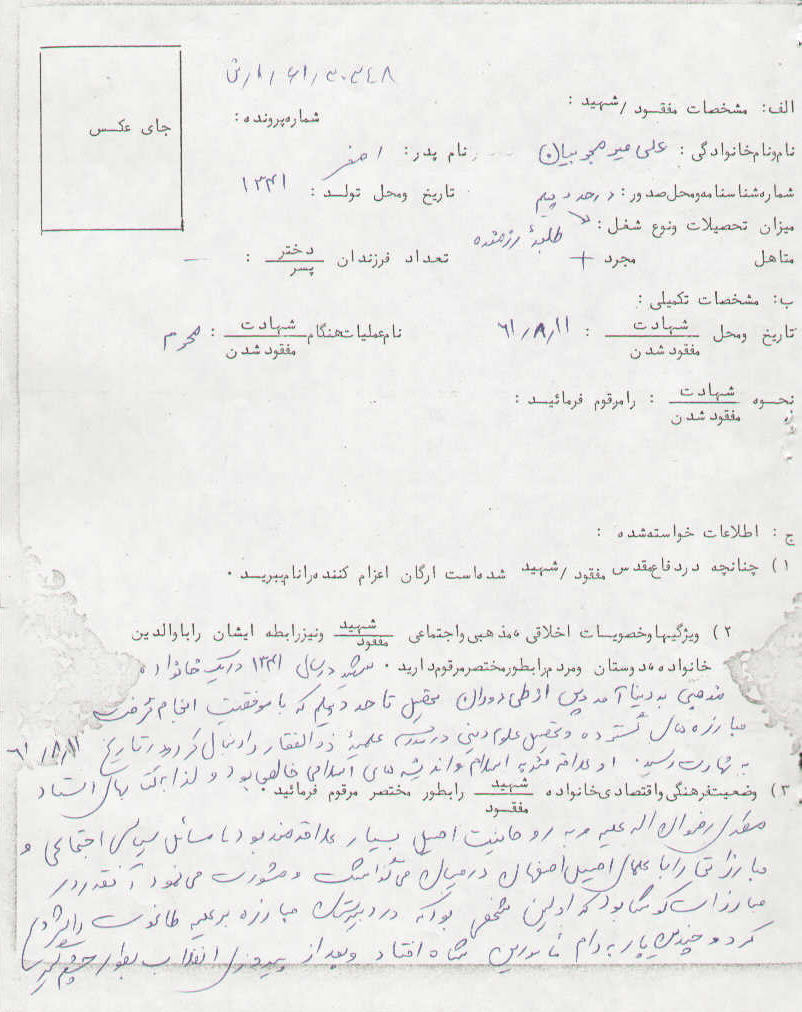 ۳۰۳۴۸ / ۶۱ / ۱ / ارش
جای عکس
الف: مشخصات مفقود/شهید :
شماره پرونده:
نام ونام خانوادگی: علی میر مجربیان
نام پدر: اصغر
شماره شناسنامه ومحل صدور: در حد دیپلم
تاریخ ومحل تولد: ۱۳۴۱
میزان تحصیلات ونوع شغل: طلبهٔ رزمنده
متاهل مجرد + تعداد فرزندان دختر / پسر : —
ب: مشخصات تکمیلی:
تاریخ ومحل شهادت / مفقود شدن : ۶۱/۸/۱۱ نام عملیات هنگام شهادت / مفقود شدن : محرم
نحوه شهادت / مفقود شدن : را مرقوم فرمائید:
ج: اطلاعات خواسته شده :
۱) چنانچه در دفاع مقدس مفقود/شهید شده است ارگان اعزام کننده را نام ببرید.
۲) ویژگیها وخصویات اخلاقی، مذهبی واجتماعی شهید / مفقود ونیز رابطه ایشان را با والدین
خانواده، دوستان ومردم را بطور مختصر مرقوم دارید. شهید در سال ۱۳۴۱ در یک خانواده
مذهبی به دنیا آمد پس از طی دوران تحصیل تا حد دیپلم که با موفقیت انجام گرفت
مبارزه های گسترده و تحصیل علوم دینی در مدرسه علمیهٔ ذوالفقار را دنبال کرد و در تاریخ ۶۱/۸/۱۱
به شهادت رسید. او علاقه مند به اسلام و اندیشه های اسلامی خالص بود و لذا به کتابهای استاد
۳) وضعیت فرهنگی واقتصادی خانواده شهید / مفقود را بطور مختصر مرقوم فرمائید
مطهری رضوان اله علیه و به روحانیت اصیل بسیار علاقه مند بود با مسائل سیاسی اجتماعی و
مبارزاتی را با علمای اصیل اصفهان در میان می گذاشت و مشورت می نمود آنقدر در
مبارزات کوشا بود که اولین شخصی بود که در دبیرستان مبارزه بر علیه طاغوت را شروع
کرد و چندین بار به دام مأمورین شاه افتاد و بعد از پیروزی انقلاب بطور